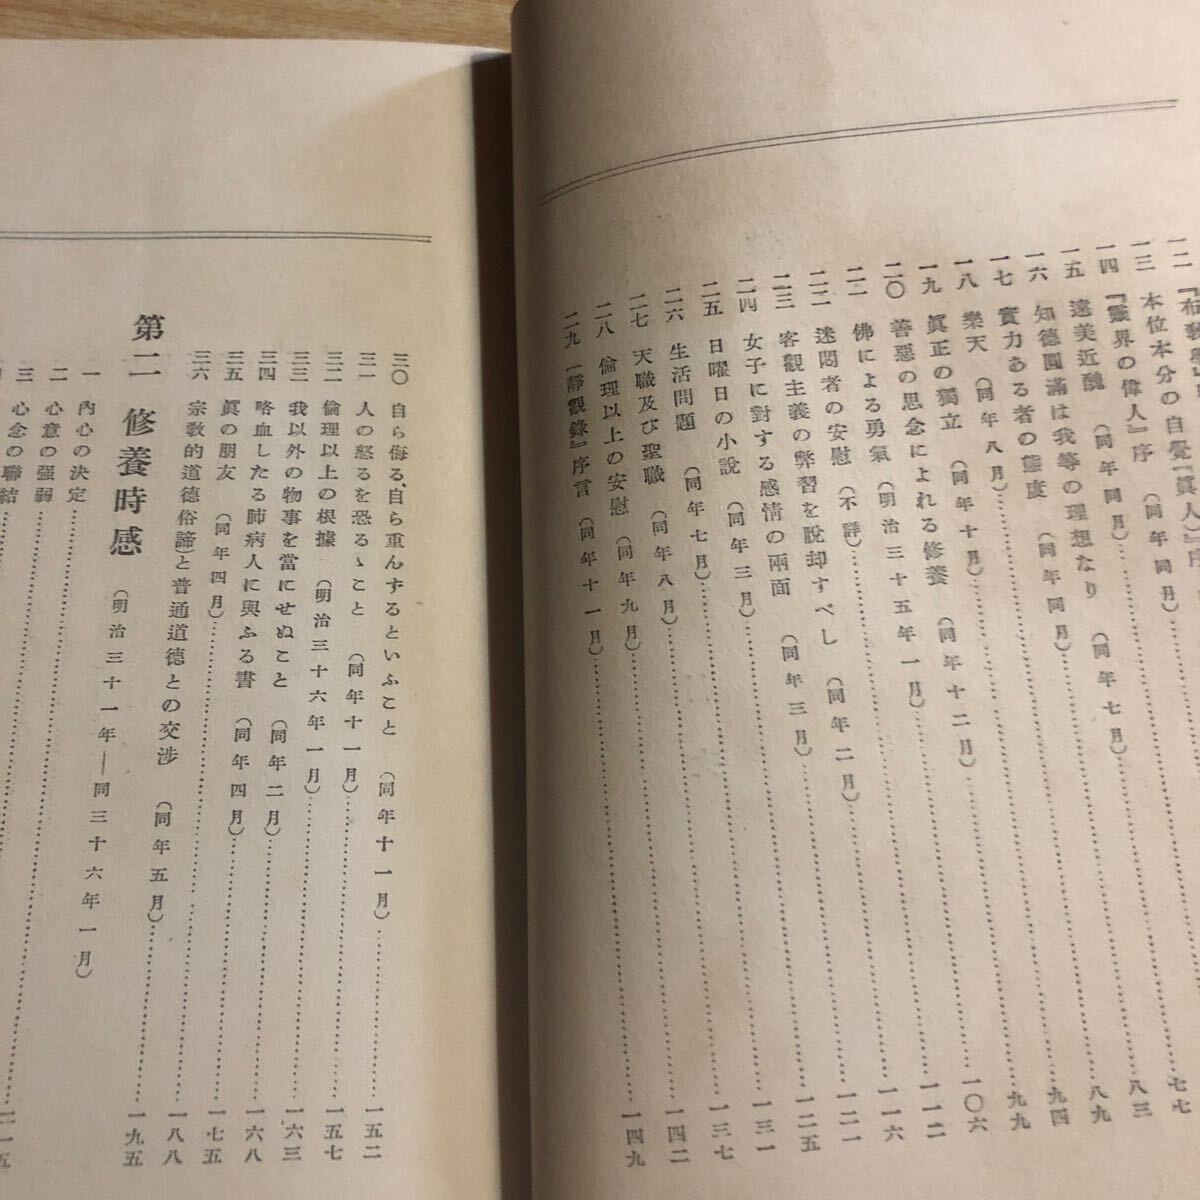 一二
一三 本位本分の自覺
一四 『靈界の偉人』序 (同年同月)
一五 遠美近醜 (同年同月)
一六 知德圓滿は我等の理想なり (同年七月) 七七
一七 實力ある者の態度 (同年同月) 八三
一八 樂天 (同年八月) 八九
一九 眞正の獨立 (同年十月) 九四
二〇 善惡の思念によれる修養 (同年十二月) 九九
二一 佛による勇氣 (明治三十五年一月) 一〇六
二二 迷悶者の安慰 (不詳) 一一二
二三 客觀主義の弊習を脫却すべし (同年二月) 一一六
二四 女子に對する感情の兩面 (同年三月) 一二一
二五 日曜日の小說 (同年三月) 一二五
二六 生活問題 (同年七月) 一三一
二七 天職及び聖職 (同年八月) 一三七
二八 倫理以上の安慰 (同年九月) 一四二
二九 『靜觀錄』序言 (同年十一月) 一四九
三〇 自ら侮る、自ら重んずるといふこと (同年十一月) 一五二
三一 人の怒るを恐るゝこと (同年十一月) 一五七
三二 倫理以上の根據 (明治三十六年一月) 一六三
三三 我以外の物事を當にせぬこと (同年二月) 一六八
三四 咯血したる肺病人に與ふる書 (同年四月) 一七五
三五 眞の朋友 (同年四月) 一八八
三六 宗敎的道德(俗諦)と普通道德との交涉 (同年五月) 一九五
第二 修養時感 (明治三十一年―同三十六年一月)
一 內心の決定 二一五
二 心意の强弱
三 心念の聯結